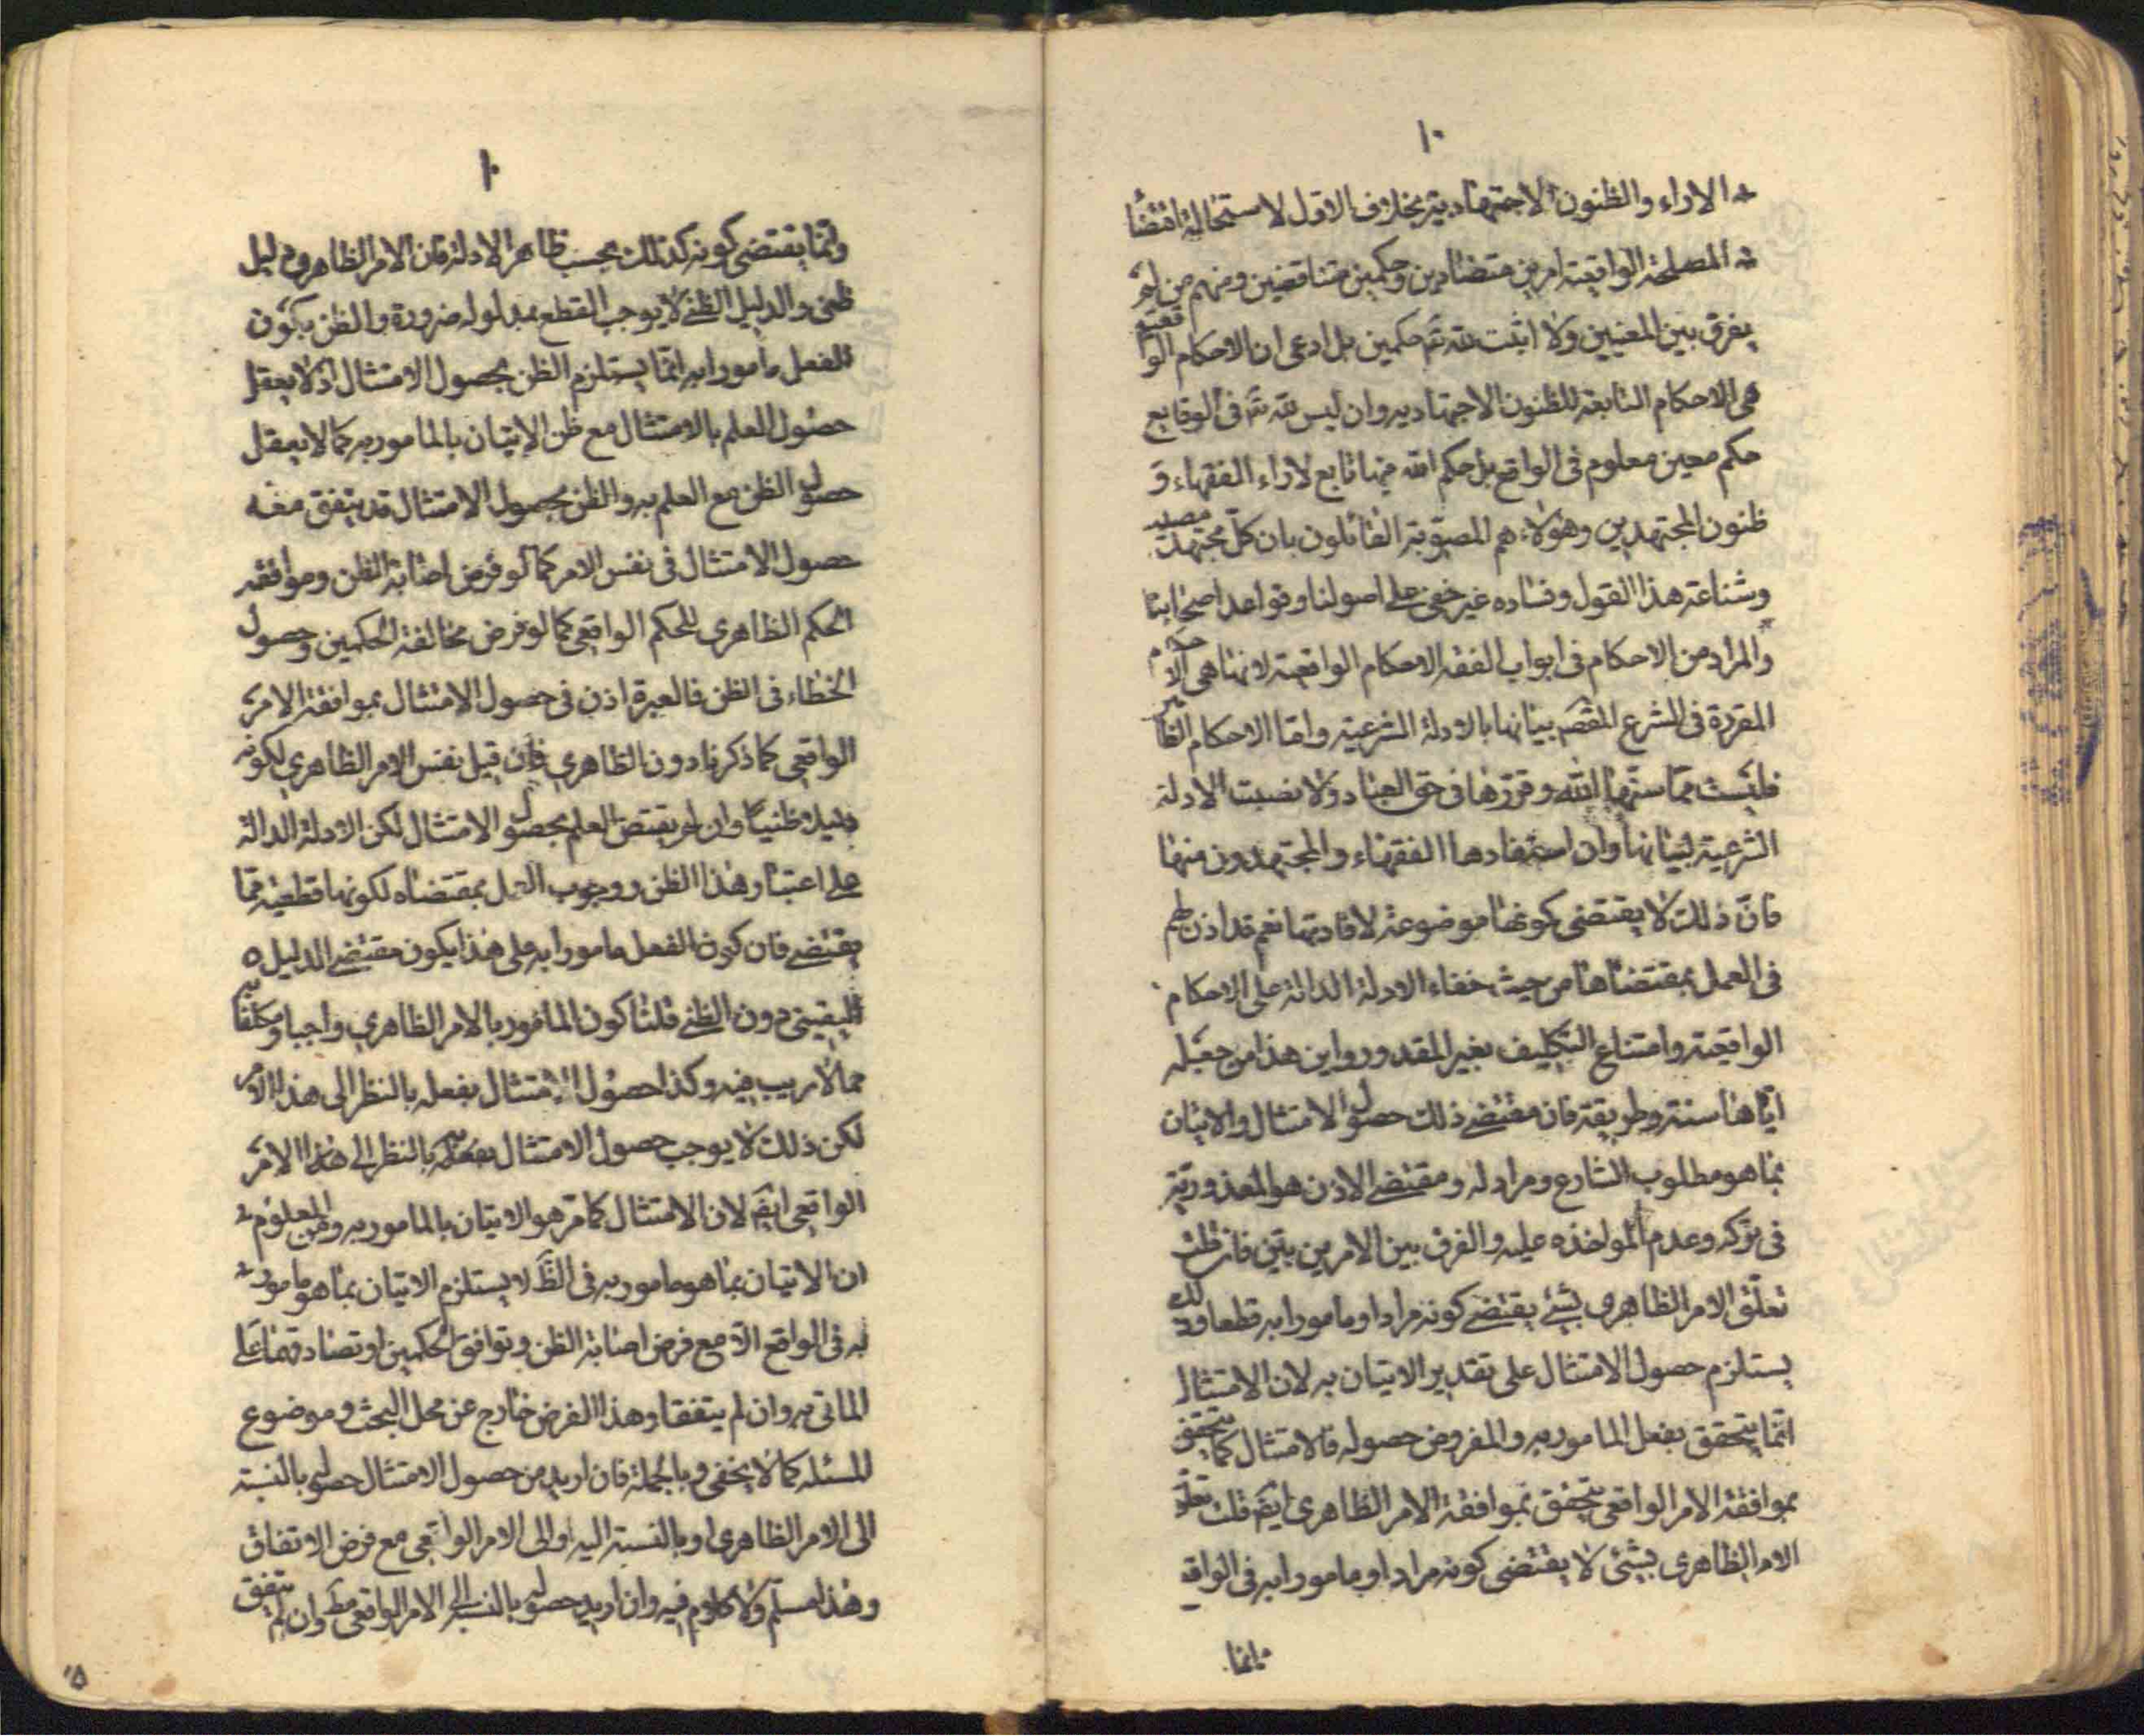 ١٠
الاراء والظنون الاجتهادية بخلاف الاول لاستحالة اقتضاء
المصلحة الواقعية امرين متضادين وحكمين متناقضين ومنهم من لم
يفرق بين المعنيين ولا اثبت لله تم حكمين بل ادعى ان الاحكام الواقعية
هى الاحكام التابعة للظنون الاجتهاديه وان ليس لله تم فى الوقايع
حكم معين معلوم فى الواقع بل حكم الله فيها تابع لاراء الفقهاء و
ظنون المجتهدين وهؤلاء هم المصوّبة القائلون بان كلّ مجتهد مصيب
وشناعة هذا القول وفساده غير خفى على اصولنا وقواعد اصحابنا
والمراد من الاحكام فى ابواب الفقه الاحكام الواقعية لانها هى الاحكام
المقررة فى الشرع المقصم بيانها بالادلة الشرعية واما الاحكام الظاهرية
فليست مما سنّها الله وقررها فى حق العباد ولا نصبت الادلة
الشرعية لبيانها وان استفادها الفقهاء والمجتهدون منها
فانّ ذلك لا يقتضى كونها موضوعة لافادتها نعم قد اذن لهم
فى العمل بمقتضاها من حيث خفاء الادلة الدالة على الاحكام
الواقعية وامتناع التكليف بغير المقدور واين هذا من جعله
ايّاها سنة وطريقة فان مقتضى ذلك حصول الامتثال والاتيان
بما هو مطلوب الشارع ومراد له ومقتضى الاذن هو المعذورية
فى تركه وعدم المؤاخذه عليه والفرق بين الامرين بيّن فان قلت
تعلّق الامر الظاهرى بشئ يقتضى كونه مرادا ومامورا به قطعا وذلك
يستلزم حصول الامتثال على تقدير الاتيان به لان الامتثال
انما يتحقق بفعل المامور به والمفروض حصوله فالامتثال كما يتحقق
بموافقة الامر الواقعى يتحقق بموافقة الامر الظاهرى ايضم قلت تعلق
الامر الظاهرى بشئ لا يقتضى كونه مرادا ومامورا به فى الواقع
وانما
١٠
وانما يقتضى كونه كذلك بحسب ظاهر الادلة فان الامر الظاهرى دليل
ظنى والدليل الظنى لا يوجب القطع بمدلوله ضرورة والظن بكون
الفعل مامورا به انما يستلزم الظن بحصول الامتثال اذ لا يعقل
حصول العلم بالامتثال مع ظن الاتيان بالمامور به كما لا يعقل
حصول الظن مع العلم به والظن بحصول الامتثال قد يتفق معه
حصول الامتثال فى نفس الامر كما لو فرض اصابة الظن وموافقة
الحكم الظاهرى للحكم الواقعى كما لو فرض مخالفة الحكمين وحصول
الخطاء فى الظن فالعبرة اذن فى حصول الامتثال بموافقة الامر
الواقعى كما ذكرنا دون الظاهرى فان قيل نفس الامر الظاهرى لكونه
دليلا ظنيا وان لم يقتض العلم بحصول الامتثال لكن الادلة الدالة
على اعتبار هذا الظن ووجوب العمل بمقتضاه لكونها قطعية مما
يقتضى فان كون الفعل مامورا به على هذا يكون مقتضى الدليل
اليقينى دون الظنى قلنا كون المامور بالامر الظاهرى واجبا ومكلفا به
مما لا ريب فيه وكذا حصول الامتثال بفعله بالنظر الى هذا الامر
لكن ذلك لا يوجب حصول الامتثال بفعله بالنظر الى هذا الامر
الواقعى ايضم لان الامتثال كما مر هو الاتيان بالمامور به ومن المعلوم
ان الاتيان بما هو مامور به فى الظم لا يستلزم الاتيان بما هو مامور
به فى الواقع الا مع فرض اصابة الظن وتوافق الحكمين او تصادقهما على
الماتى به وان لم يتفقا وهذا الفرض خارج عن محل البحث وموضوع
المسئله كما لا يخفى وبالجملة فان اريد من حصول الامتثال حصوله بالنسبة
الى الامر الظاهرى او بالنسبة اليه والى الامر الواقعى مع فرض الاتفاق
وهذا مسلّم ولا كلام فيه وان اريد حصوله بالنسبة الى الامر الواقعى مطم وان لم يتفق